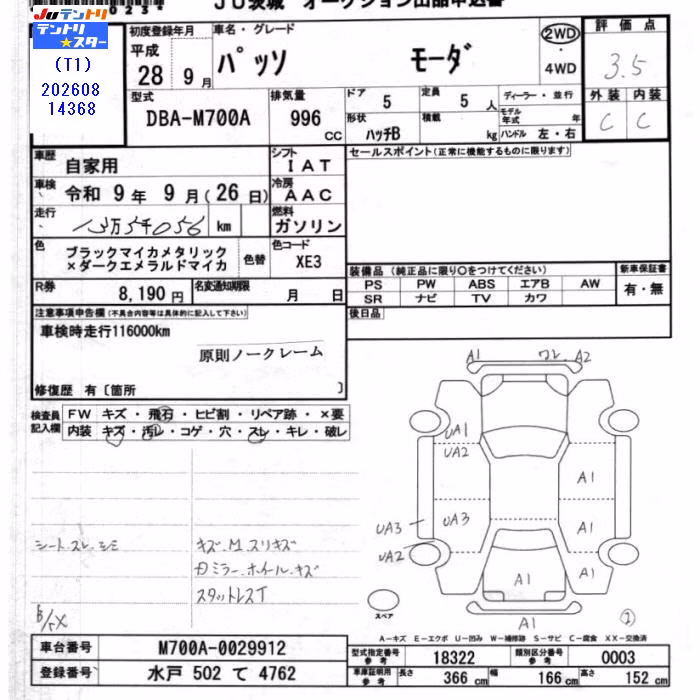 JU茨城 オークション出品申込書
0234
JUテントリ
テントリ★スター
(T1)
202608
14368
初度登録年月
平成
28 9月
車名・グレード
パッソ モーダ
2WD
・
4WD
評価点
3.5
型式
DBA-M700A
排気量
996
cc
ドア 5
定員 5人
ディーラー・並行
モデル年式 年
形状 ハッチB
積載 kg
ハンドル 左・右
外装 内装
C C
車歴 自家用
シフト IAT
セールスポイント(正常に機能するものに限ります)
車検 令和 9年 9月(26日)
冷房 AAC
走行 13万5千056 km
燃料 ガソリン
色 ブラックマイカメタリック
×ダークエメラルドマイカ
色替
色コード XE3
R券 8,190円
名変通知期限 月 日
装備品(純正品に限り○をつけてください)
PS PW ABS エアB AW
SR ナビ TV カワ
新車保証書
有・無
後日品
注意事項申告欄(不具合内容等は具体的に記入して下さい)
車検時走行116000km
原則ノークレーム
修復歴 有〔箇所 〕
検査員
記入欄
FW キズ・飛石・ヒビ割・リペア跡・×要
内装 キズ・汚レ・コゲ・穴・スレ・キレ・破レ
シートスレ シミ
キズ.M.スリキズ
Dミラー.ホイール.キズ
スタットレスT
A1 ワレ A2
UA1
UA2
UA3
UA3
UA2
A1
A1
A1
A1
A1
スペア
②
A−キズ E−エクボ U−凹み W−補修跡 S−サビ C−腐食 XX−交換済
車台番号 M700A-0029912
登録番号 水戸 502 て 4762
型式指定番号
参考
18322
類別区分番号
参考
0003
車庫証明用
参考
長さ 366 cm
幅 166 cm
高さ 152 cm